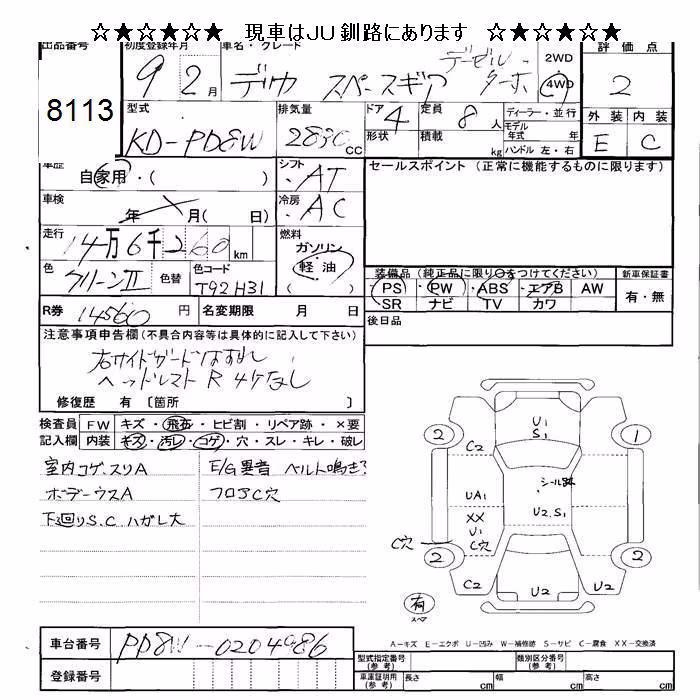 ☆★☆★☆★ 現車はJU釧路にあります ☆★☆★☆★
出品番号 初度登録年月 車名・グレード 評価点
8113 9年2月 デリカ スペースギア ディーゼル ターボ 2WD 4WD 2
型式 排気量 ドア 定員 ディーラー・並行 外装 内装
KD-PD8W 2830 CC 4 8人 モデル年式 年
形状 積載 kg ハンドル 左・右 E C
車歴 自家用・( ) シフト ・AT セールスポイント (正常に機能するものに限ります)
車検 年 月( 日) 冷房 ・AC
走行 14万6千260 km 燃料 ガソリン 軽油
色 グリーンII 色替 色コード T92 H31
装備品 (純正品に限り○をつけてください) 新車保証書
PS ・PW ・ABS ・エアB AW 有・無
SR ナビ TV カワ
R券 14560 円 名変期限 月 日 後日品
注意事項申告欄(不具合内容等は具体的に記入して下さい)
右サイドガードはずれ
ヘッドレスト R 4ケなし
修復歴 有 〔箇所 〕
検査員 FW キズ・飛石・ヒビ割・リペア跡・×要
記入欄 内装 キズ・汚レ・コゲ・穴・スレ・キレ・破レ
室内コゲ、スリA E/G異音 ベルト鳴き?
ボデーウスA フロアC穴
下廻りS.C ハガレ大
U1
S1
2
1
C2
シール跡
UA1
U2.S1
XX
U1
C穴
C穴
2
2
C2
U2
U2
有
スペア
A－キズ E－エクボ U－凹み W－補修跡 S－サビ C－腐食 XX－交換済
車台番号 PD8W-0204986
型式指定番号 (参考) 類別区分番号 (参考)
登録番号 車庫証明用 (参考) 長さ cm 幅 cm 高さ cm